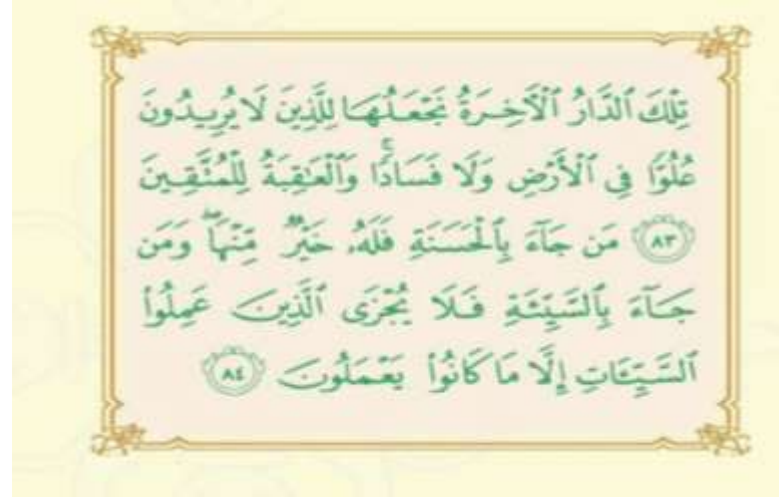 تِلْكَ ٱلدَّارُ ٱلْأَخِرَةُ نَجْعَلُهَا لِلَّذِينَ لَا يُرِيدُونَ
عُلُوًّا فِي ٱلْأَرْضِ وَلَا فَسَادًاۚ وَٱلْعَٰقِبَةُ لِلْمُتَّقِينَ
٨٣ مَن جَآءَ بِٱلْحَسَنَةِ فَلَهُۥ خَيْرٌ مِّنْهَاۖ وَمَن
جَآءَ بِٱلسَّيِّئَةِ فَلَا يُجْزَى ٱلَّذِينَ عَمِلُوا۟
ٱلسَّيِّـَٔاتِ إِلَّا مَا كَانُوا۟ يَعْمَلُونَ ٨٤